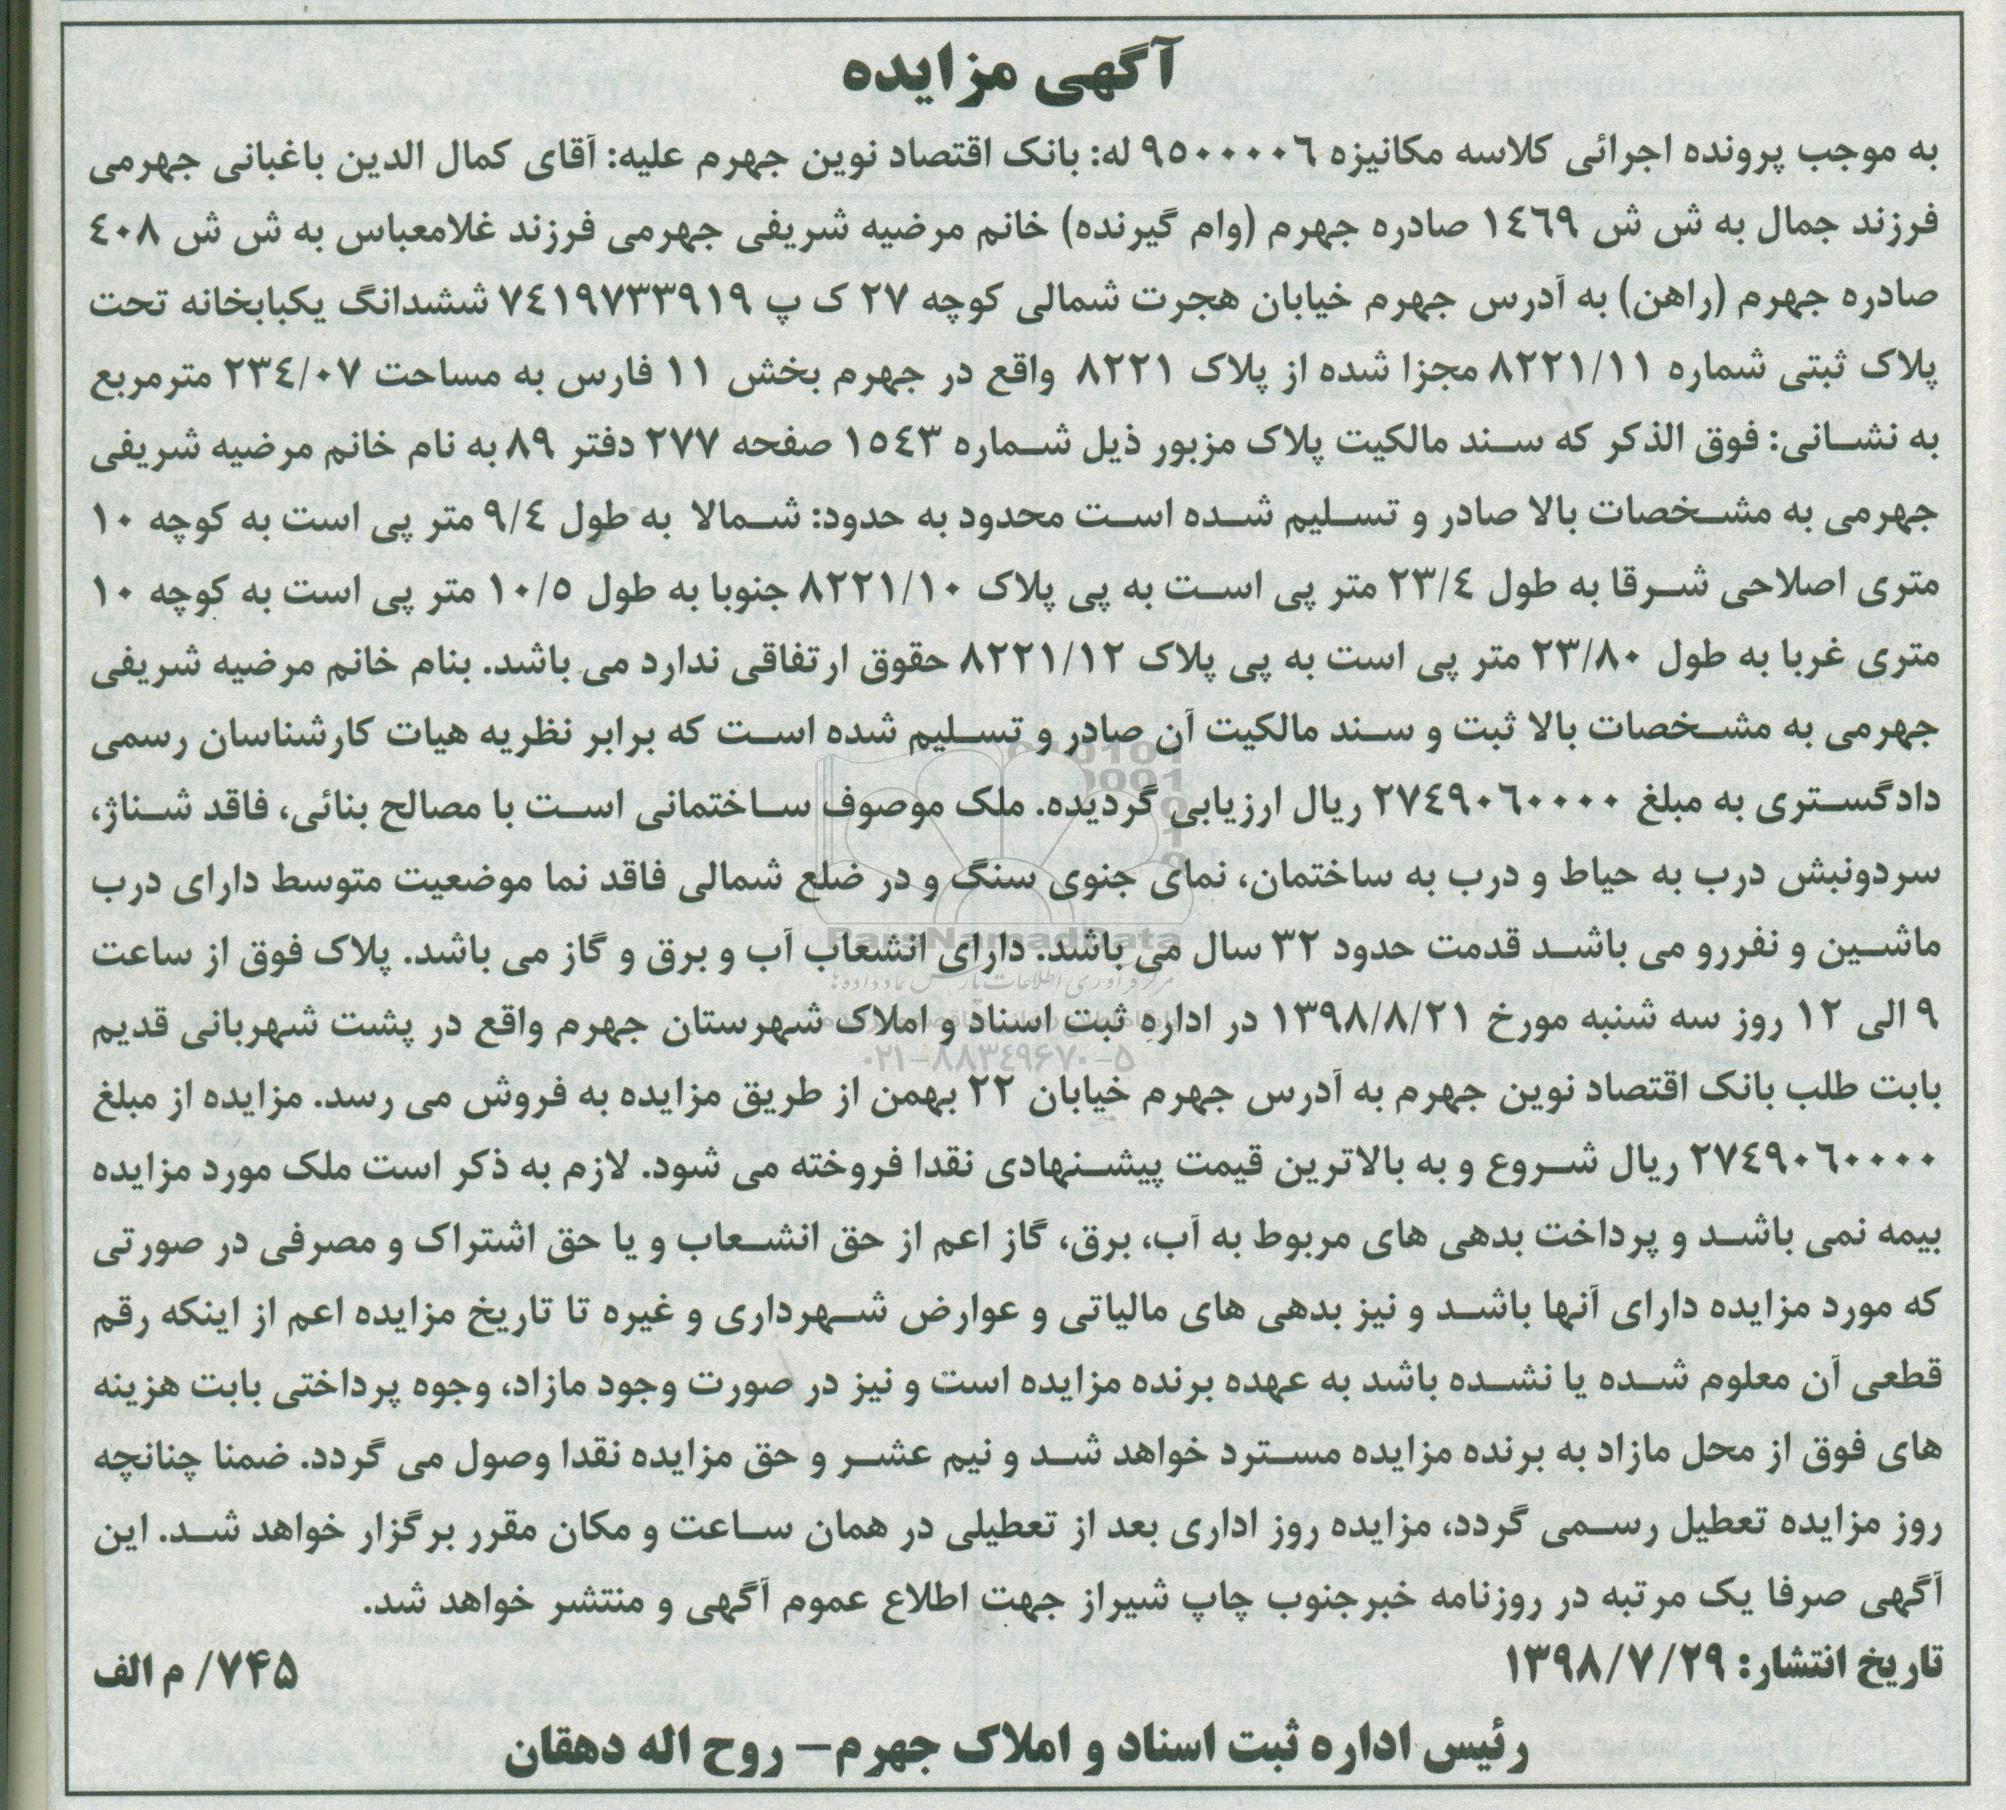 آگهی مزایده
به موجب پرونده اجرائی کلاسه مکانیزه ٩٥٠٠٠٠٦ له: بانک اقتصاد نوین جهرم علیه: آقای کمال الدین باغبانی جهرمی
فرزند جمال به ش ش ١٤٦٩ صادره جهرم (وام گیرنده) خانم مرضیه شریفی جهرمی فرزند غلامعباس به ش ش ٤٠٨
صادره جهرم (راهن) به آدرس جهرم خیابان هجرت شمالی کوچه ٢٧ ک پ ٧٤١٩٧٣٣٩١٩ ششدانگ یکبابخانه تحت
پلاک ثبتی شماره ٨٢٢١/١١ مجزا شده از پلاک ٨٢٢١ واقع در جهرم بخش ١١ فارس به مساحت ٢٣٤/٠٧ مترمربع
به نشانی: فوق الذکر که سند مالکیت پلاک مزبور ذیل شماره ١٥٤٣ صفحه ٢٧٧ دفتر ٨٩ به نام خانم مرضیه شریفی
جهرمی به مشخصات بالا صادر و تسلیم شده است محدود به حدود: شمالا به طول ٩/٤ متر پی است به کوچه ١٠
متری اصلاحی شرقا به طول ٢٣/٤ متر پی است به پی پلاک ٨٢٢١/١٠ جنوبا به طول ١٠/٥ متر پی است به کوچه ١٠
متری غربا به طول ٢٣/٨٠ متر پی است به پی پلاک ٨٢٢١/١٢ حقوق ارتفاقی ندارد می باشد. بنام خانم مرضیه شریفی
جهرمی به مشخصات بالا ثبت و سند مالکیت آن صادر و تسلیم شده است که برابر نظریه هیات کارشناسان رسمی
دادگستری به مبلغ ٢٧٤٩٠٦٠٠٠٠ ریال ارزیابی گردیده. ملک موصوف ساختمانی است با مصالح بنائی، فاقد شناژ،
سردونبش درب به حیاط و درب به ساختمان، نمای جنوی سنگ و در ضلع شمالی فاقد نما موضعیت متوسط دارای درب
ماشین و نفررو می باشد قدمت حدود ٣٢ سال می باشد. دارای انشعاب آب و برق و گاز می باشد. پلاک فوق از ساعت
٩ الی ١٢ روز سه شنبه مورخ ١٣٩٨/٨/٢١ در اداره ثبت اسناد و املاک شهرستان جهرم واقع در پشت شهربانی قدیم
بابت طلب بانک اقتصاد نوین جهرم به آدرس جهرم خیابان ٢٢ بهمن از طریق مزایده به فروش می رسد. مزایده از مبلغ
٢٧٤٩٠٦٠٠٠٠ ریال شروع و به بالاترین قیمت پیشنهادی نقدا فروخته می شود. لازم به ذکر است ملک مورد مزایده
بیمه نمی باشد و پرداخت بدهی های مربوط به آب، برق، گاز اعم از حق انشعاب و یا حق اشتراک و مصرفی در صورتی
که مورد مزایده دارای آنها باشد و نیز بدهی های مالیاتی و عوارض شهرداری و غیره تا تاریخ مزایده اعم از اینکه رقم
قطعی آن معلوم شده یا نشده باشد به عهده برنده مزایده است و نیز در صورت وجود مازاد، وجوه پرداختی بابت هزینه
های فوق از محل مازاد به برنده مزایده مسترد خواهد شد و نیم عشر و حق مزایده نقدا وصول می گردد. ضمنا چنانچه
روز مزایده تعطیل رسمی گردد، مزایده روز اداری بعد از تعطیلی در همان ساعت و مکان مقرر برگزار خواهد شد. این
آگهی صرفا یک مرتبه در روزنامه خبرجنوب چاپ شیراز جهت اطلاع عموم آگهی و منتشر خواهد شد.
تاریخ انتشار: ۱۳۹۸/۷/۲۹
۷۴۵/ م الف
رئیس اداره ثبت اسناد و املاک جهرم– روح اله دهقان
ParsNamadData
مرکز فرآوری اطلاعات پارس نماد داده ها
۰۲۱-۸۸۳۴۹۶۷۰-۵